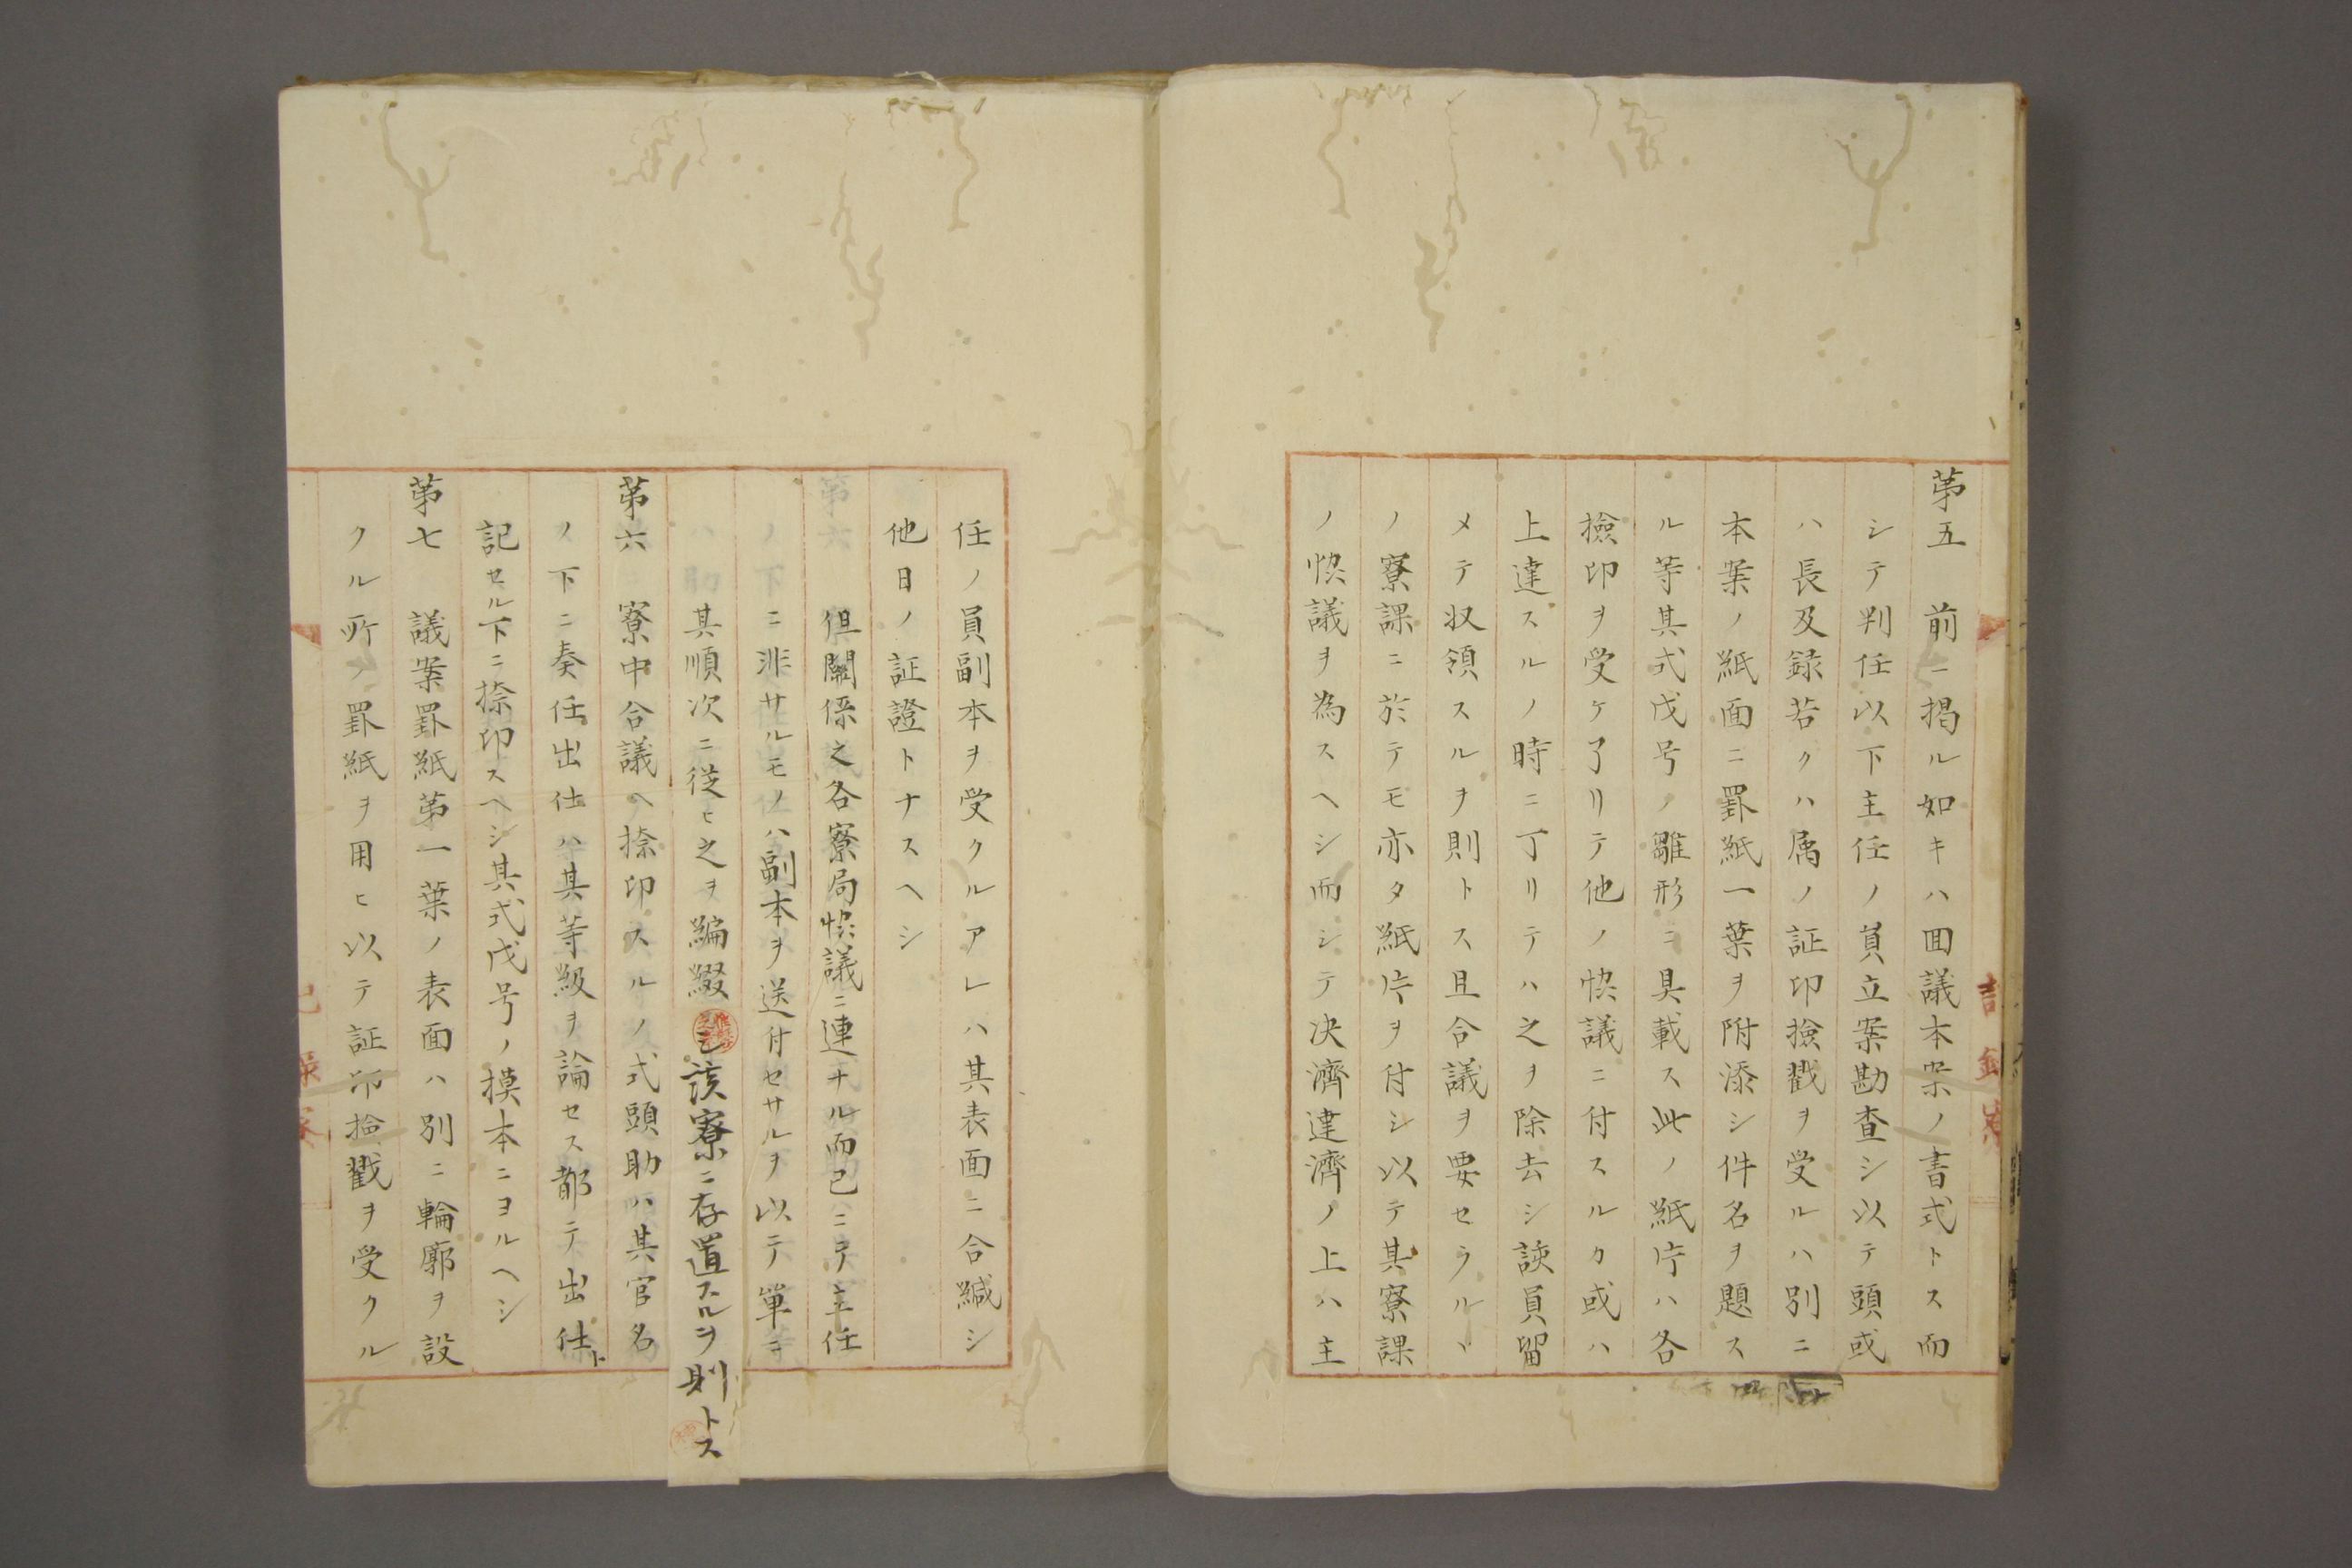 第五　前ニ掲ル如キハ回議本案ノ書式トス而
シテ判任以下主任ノ員立案勘査シ以テ頭或
ハ長及録若クハ属ノ証印撿戳ヲ受ルハ別ニ
本案ノ紙面ニ罫紙一葉ヲ附添シ件名ヲ題ス
ル等其式戊号ノ雛形ニ具載ス此ノ紙片ハ各
撿印ヲ受ケ了リテ他ノ恊議ニ付スルカ或ハ
上達スルノ時ニ丁リテハ之ヲ除去シ該員留
メテ収領スルヲ則トス且合議ヲ要セラルヽ
ノ寮課ニ於テモ亦タ紙片ヲ付シ以テ其寮課
ノ恊議ヲ為スヘシ而シテ决濟達濟ノ上ハ主
任ノ員副本ヲ受クルアレハ其表面ニ合緘シ
他日ノ証證トナスヘシ
但關係之各寮局恊議ニ連ナル而已ニテ主任
ニ非サルモノハ副本ヲ送付セサルヲ以テ單ニ
其順次ニ従ヒ之ヲ編綴シ該寮ニ存置スルヲ則トス
第六　寮中合議ヘ捺印スルノ式頭助ハ其官名
ノ下ニ奏任出仕ハ其等級ヲ論セス都テ出仕ト
記セル下ニ捺印スヘシ其式戊号ノ摸本ニヨルヘシ
第七　議案罫紙第一葉ノ表面ハ別ニ輪廓ヲ設
クル所ノ罫紙ヲ用ヒ以テ証印撿戳ヲ受クル